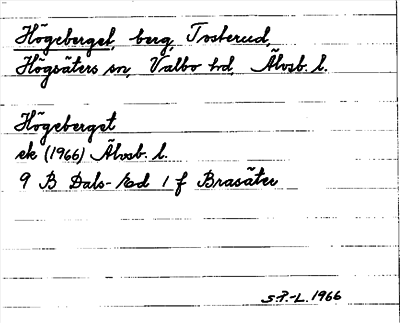 Högeberget, berg, Tosterud,
Högsäters sn, Valbo hd, Älvsb. l.
Högeberget
ek (1966) Älvsb. l.
9 B Dals-Ed 1 f Brasäter
S.P.-L. 1966